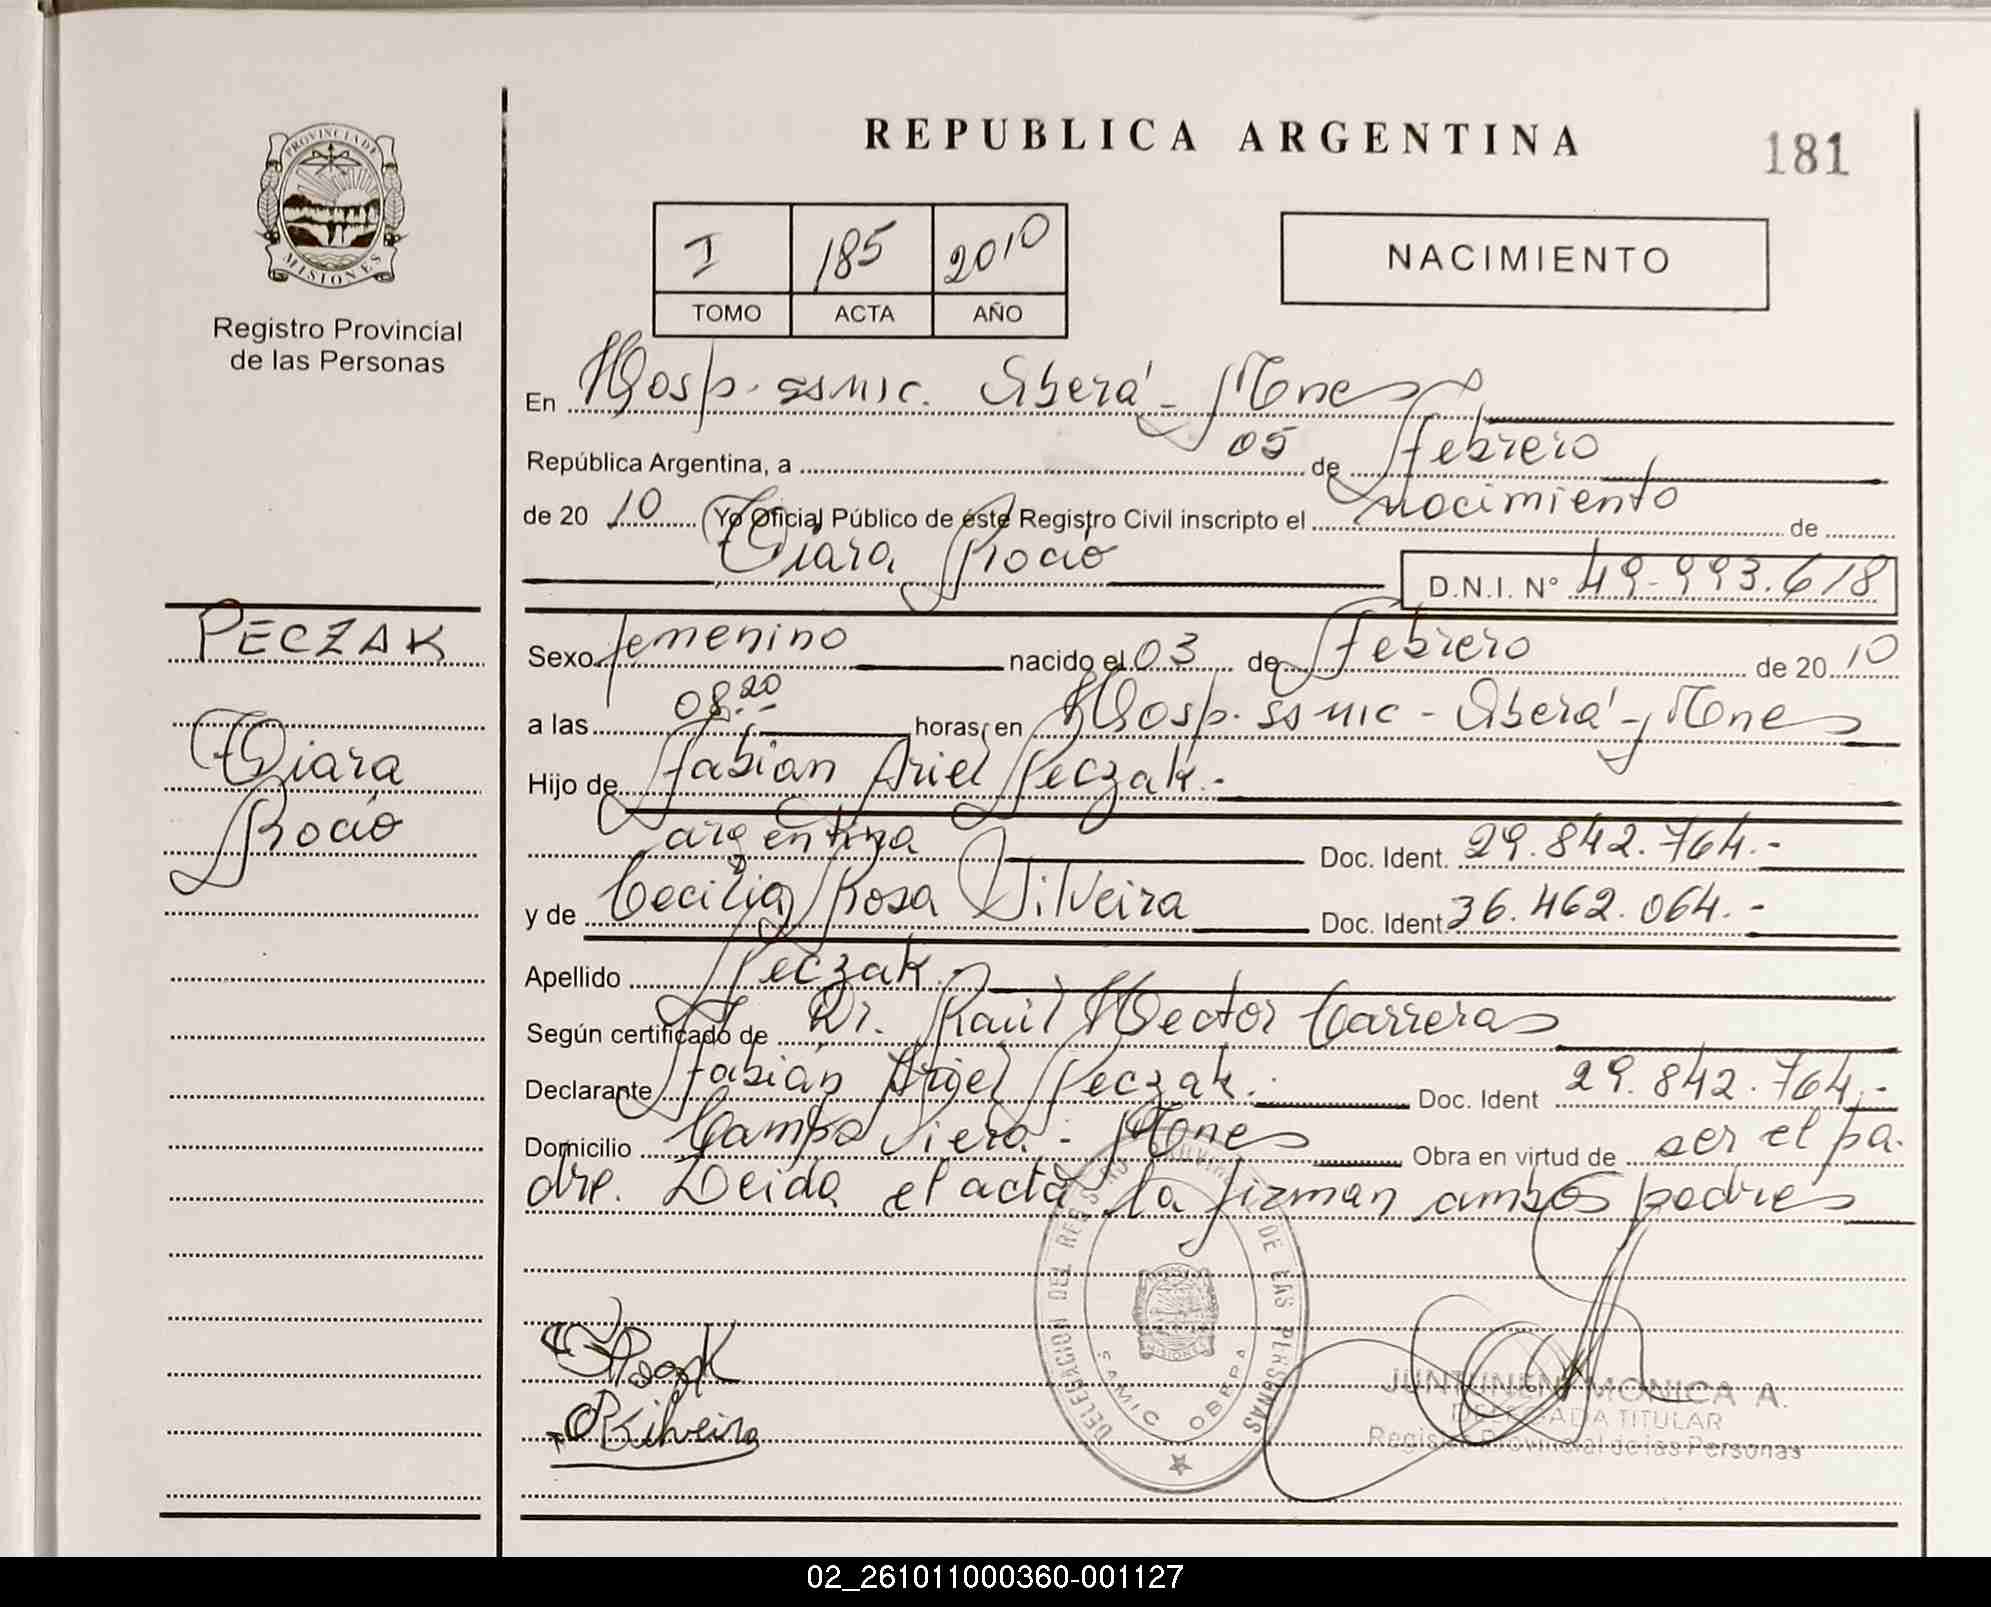 REPUBLICA ARGENTINA
181
PROVINCIA DE
MISIONES
Registro Provincial
de las Personas
I 185 2010
TOMO ACTA AÑO
NACIMIENTO
En Hosp. ssmic. Oberá - Mnes
República Argentina, a 05 de febrero
de 20 10 Yo Oficial Público de éste Registro Civil inscripto el nacimiento de
Tiara Rocio D.N.I. N° 49.993.618
PECZAK
Tiara
Rocio
Sexo femenino nacido el 03 de febrero de 20 10
a las 08.20 horas, en Hosp. ssmic - Oberá - Mnes
Hijo de Fabian Ariel Peczak.-
argentina Doc. Ident. 29.842.764.-
y de Cecilia Rosa Silveira Doc. Ident. 36.462.064.-
Apellido Peczak.-
Según certificado de Dr. Raúl Hector Carreras
Declarante Fabián Ariel Peczak.- Doc. Ident 29.842.764.-
Domicilio Campo Viera - Mnes Obra en virtud de ser el pa-
dre. Leida el acta la firman ambos padres
DELEGACION DEL REGISTRO DE LAS PERSONAS
MISIONES
SAMIC OBERA
JUNTUNEN MONICA A.
DELEGADA TITULAR
Registro Provincial de las Personas
02_261011000360-001127